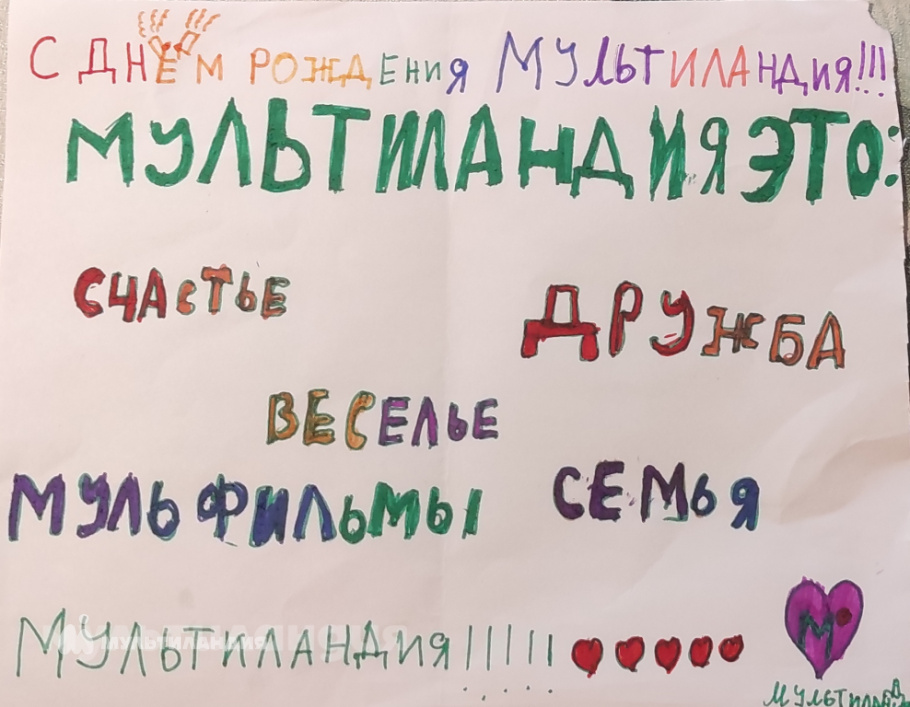 С ДНЁМ РОЖДЕНИЯ МУЛЬТИЛАНДИЯ!!!
МУЛЬТИЛАНДИЯ ЭТО:
СЧАСТЬЕ
ДРУЖБА
ВЕСЕЛЬЕ
МУЛЬФИЛЬМЫ
СЕМЬЯ
МУЛЬТИЛАНДИЯ!!!!!
МУЛЬТИЛАНДИЯ
М